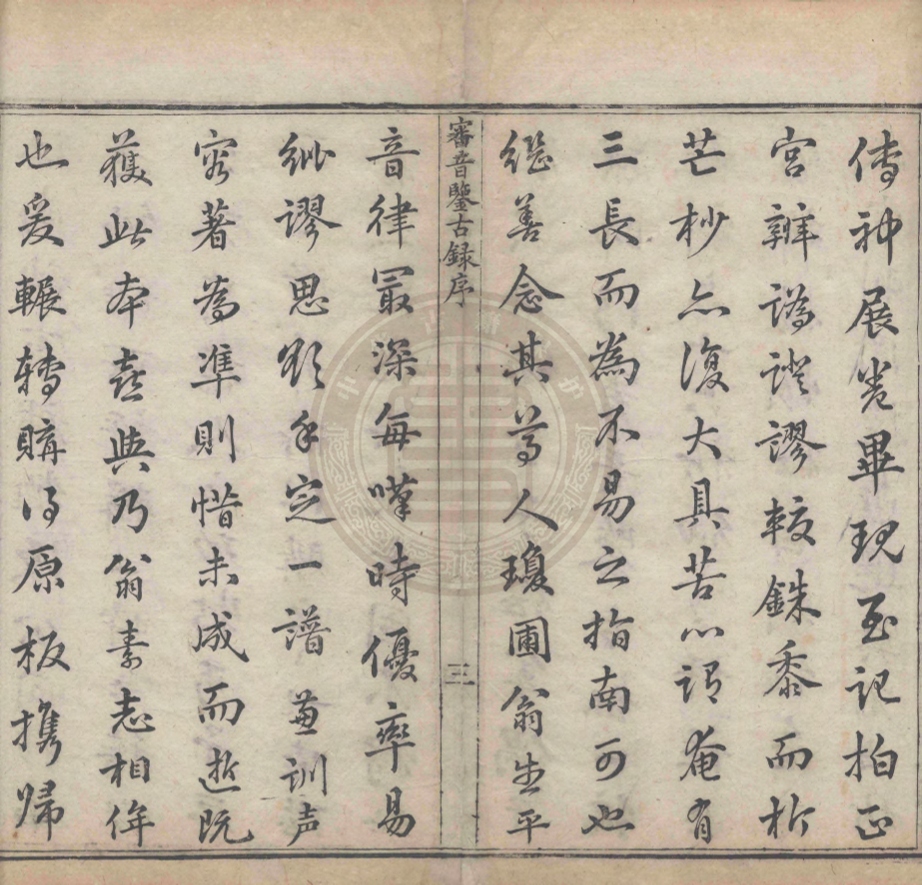 傳神展卷畢現至記拍正
宮辨譌證謬較銖黍而析
芒杪亦復大具苦心謂奄有
三長而為不易之指南可也
繼善念其尊人瓊圃翁生平
審音鑒古録序
三
音律最深每嘆時優率易
紕謬思欲手定一譜兼訓声
容著為準則惜未成而逝既
獲此本喜與乃翁素志相侔
也爰輾轉購得原板攜歸